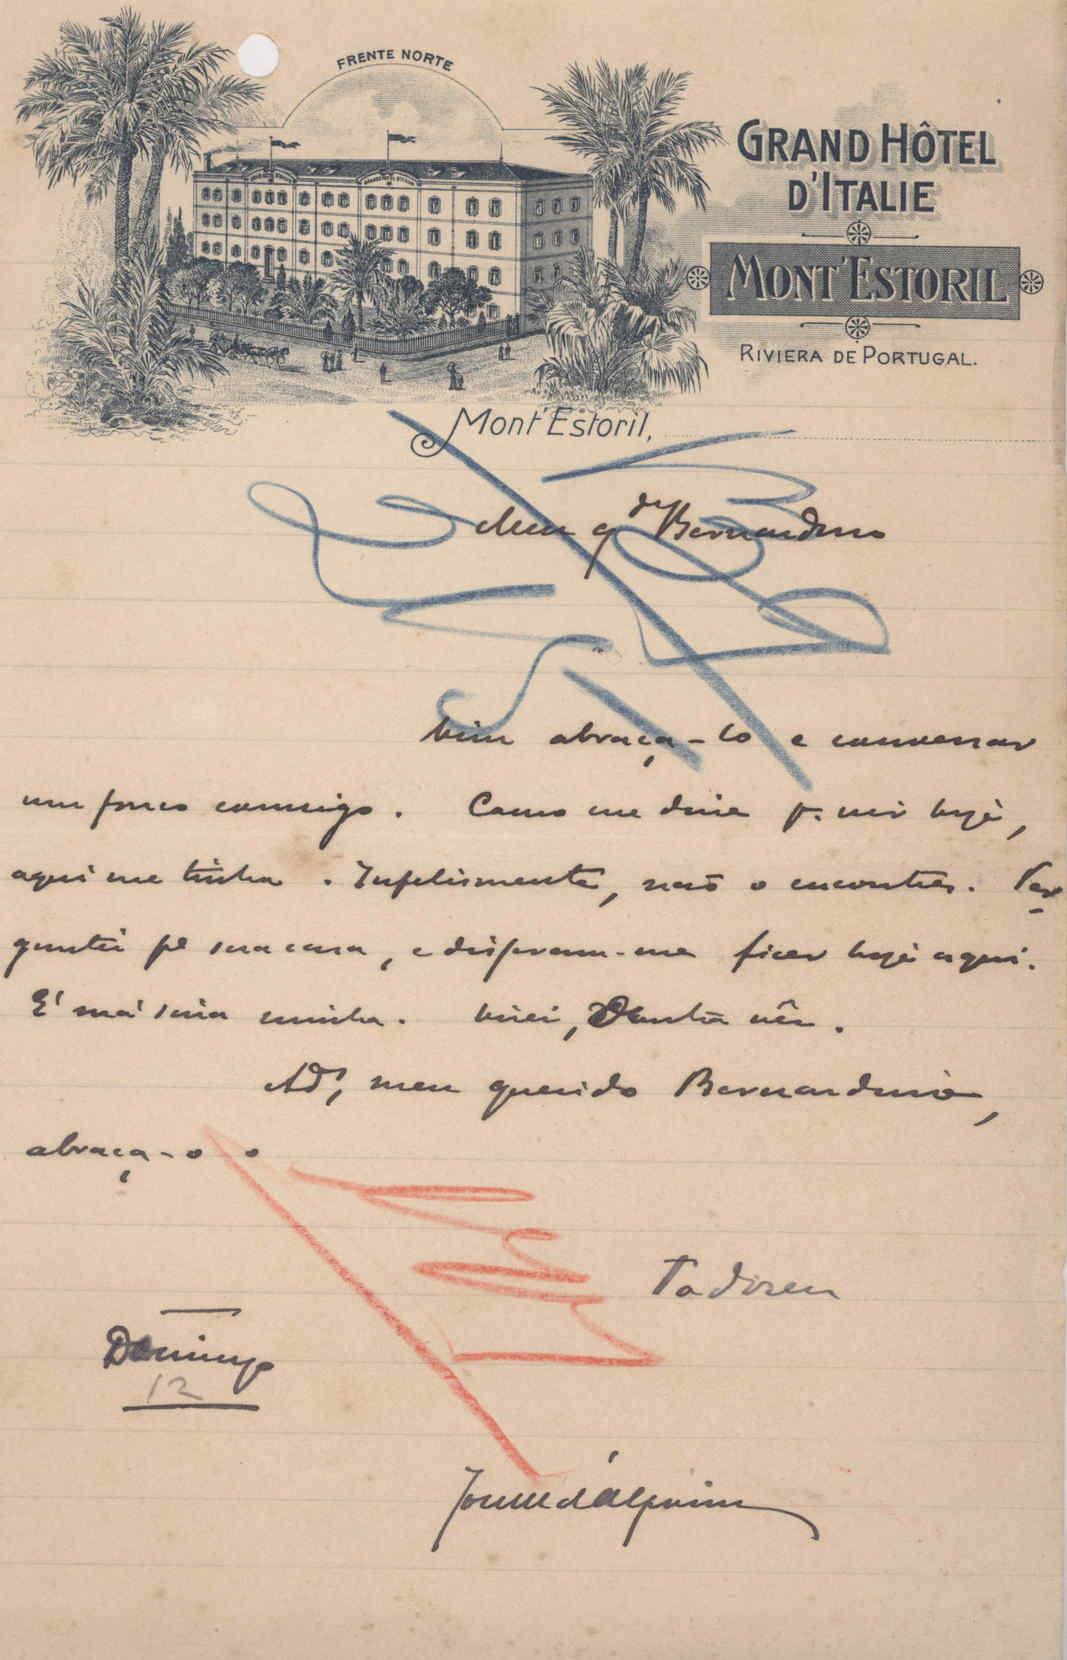 FRENTE NORTE
GRAND HÔTEL
D'ITALIE
MONT'ESTORIL
RIVIERA DE PORTUGAL.
Mont'Estoril,
Meu q.do Bernardino
Vim abraça-lo e conversar
um pouco comsigo. Como me disse p. vir hoje,
aqui me tinha. Infelismente, não o encontrei. Per
guntei pl sua casa, e disseram-me ficar hoje aqui.
É má sina minha. Virei, vêr.
Ads, meu querido Bernardino,
abraça-o o
Todo seu
Domingo
12